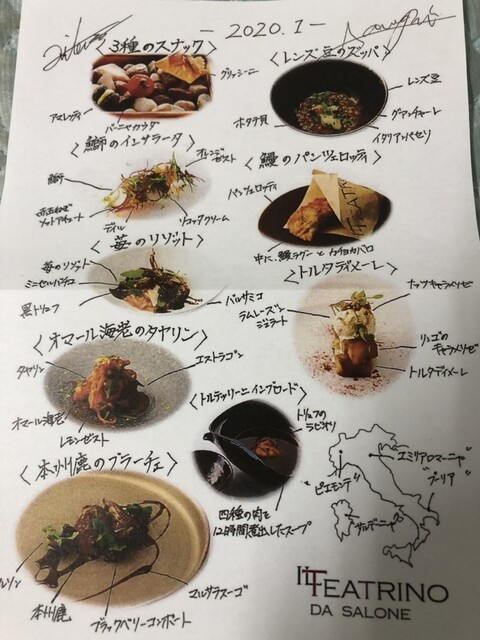 - 2020.1 -
〈3種のスナック〉
グリッシーニ
アマレッティ
バーニャカウダ
〈レンズ豆のズッパ〉
レンズ豆
ホタテ貝
グアンチャーレ
イタリアンパセリ
〈鰤のインサラータ〉
オレンジゼスト
鰤
ディル
リコッタクリーム
〈鰻のパンツェロッティ〉
パンツェロッティ
中に、鰻ラグーとカチョカバロ
〈苺のリゾット〉
苺のリゾット
ミニセルバチコ
黒トリュフ
バルサミコ
〈トルタディメーレ〉
ナッツキャラメリゼ
ラムレーズンジェラート
リンゴのキャラメリゼ
トルタディメーレ
〈オマール海老のタヤリン〉
タヤリン
エストラゴン
オマール海老
レモンゼスト
〈トルテッリーニインブロード〉
トリュフのラビオリ
四種の肉を
12時間煮出したスープ
〈本州鹿のブラーチェ〉
本州鹿
ブラックベリーコンポート
マルサラスーゴ
"エミリアロマーニャ"
"ピエモンテ"
"プーリア"
"サルデーニャ"
IL TEATRINO
DA SALONE